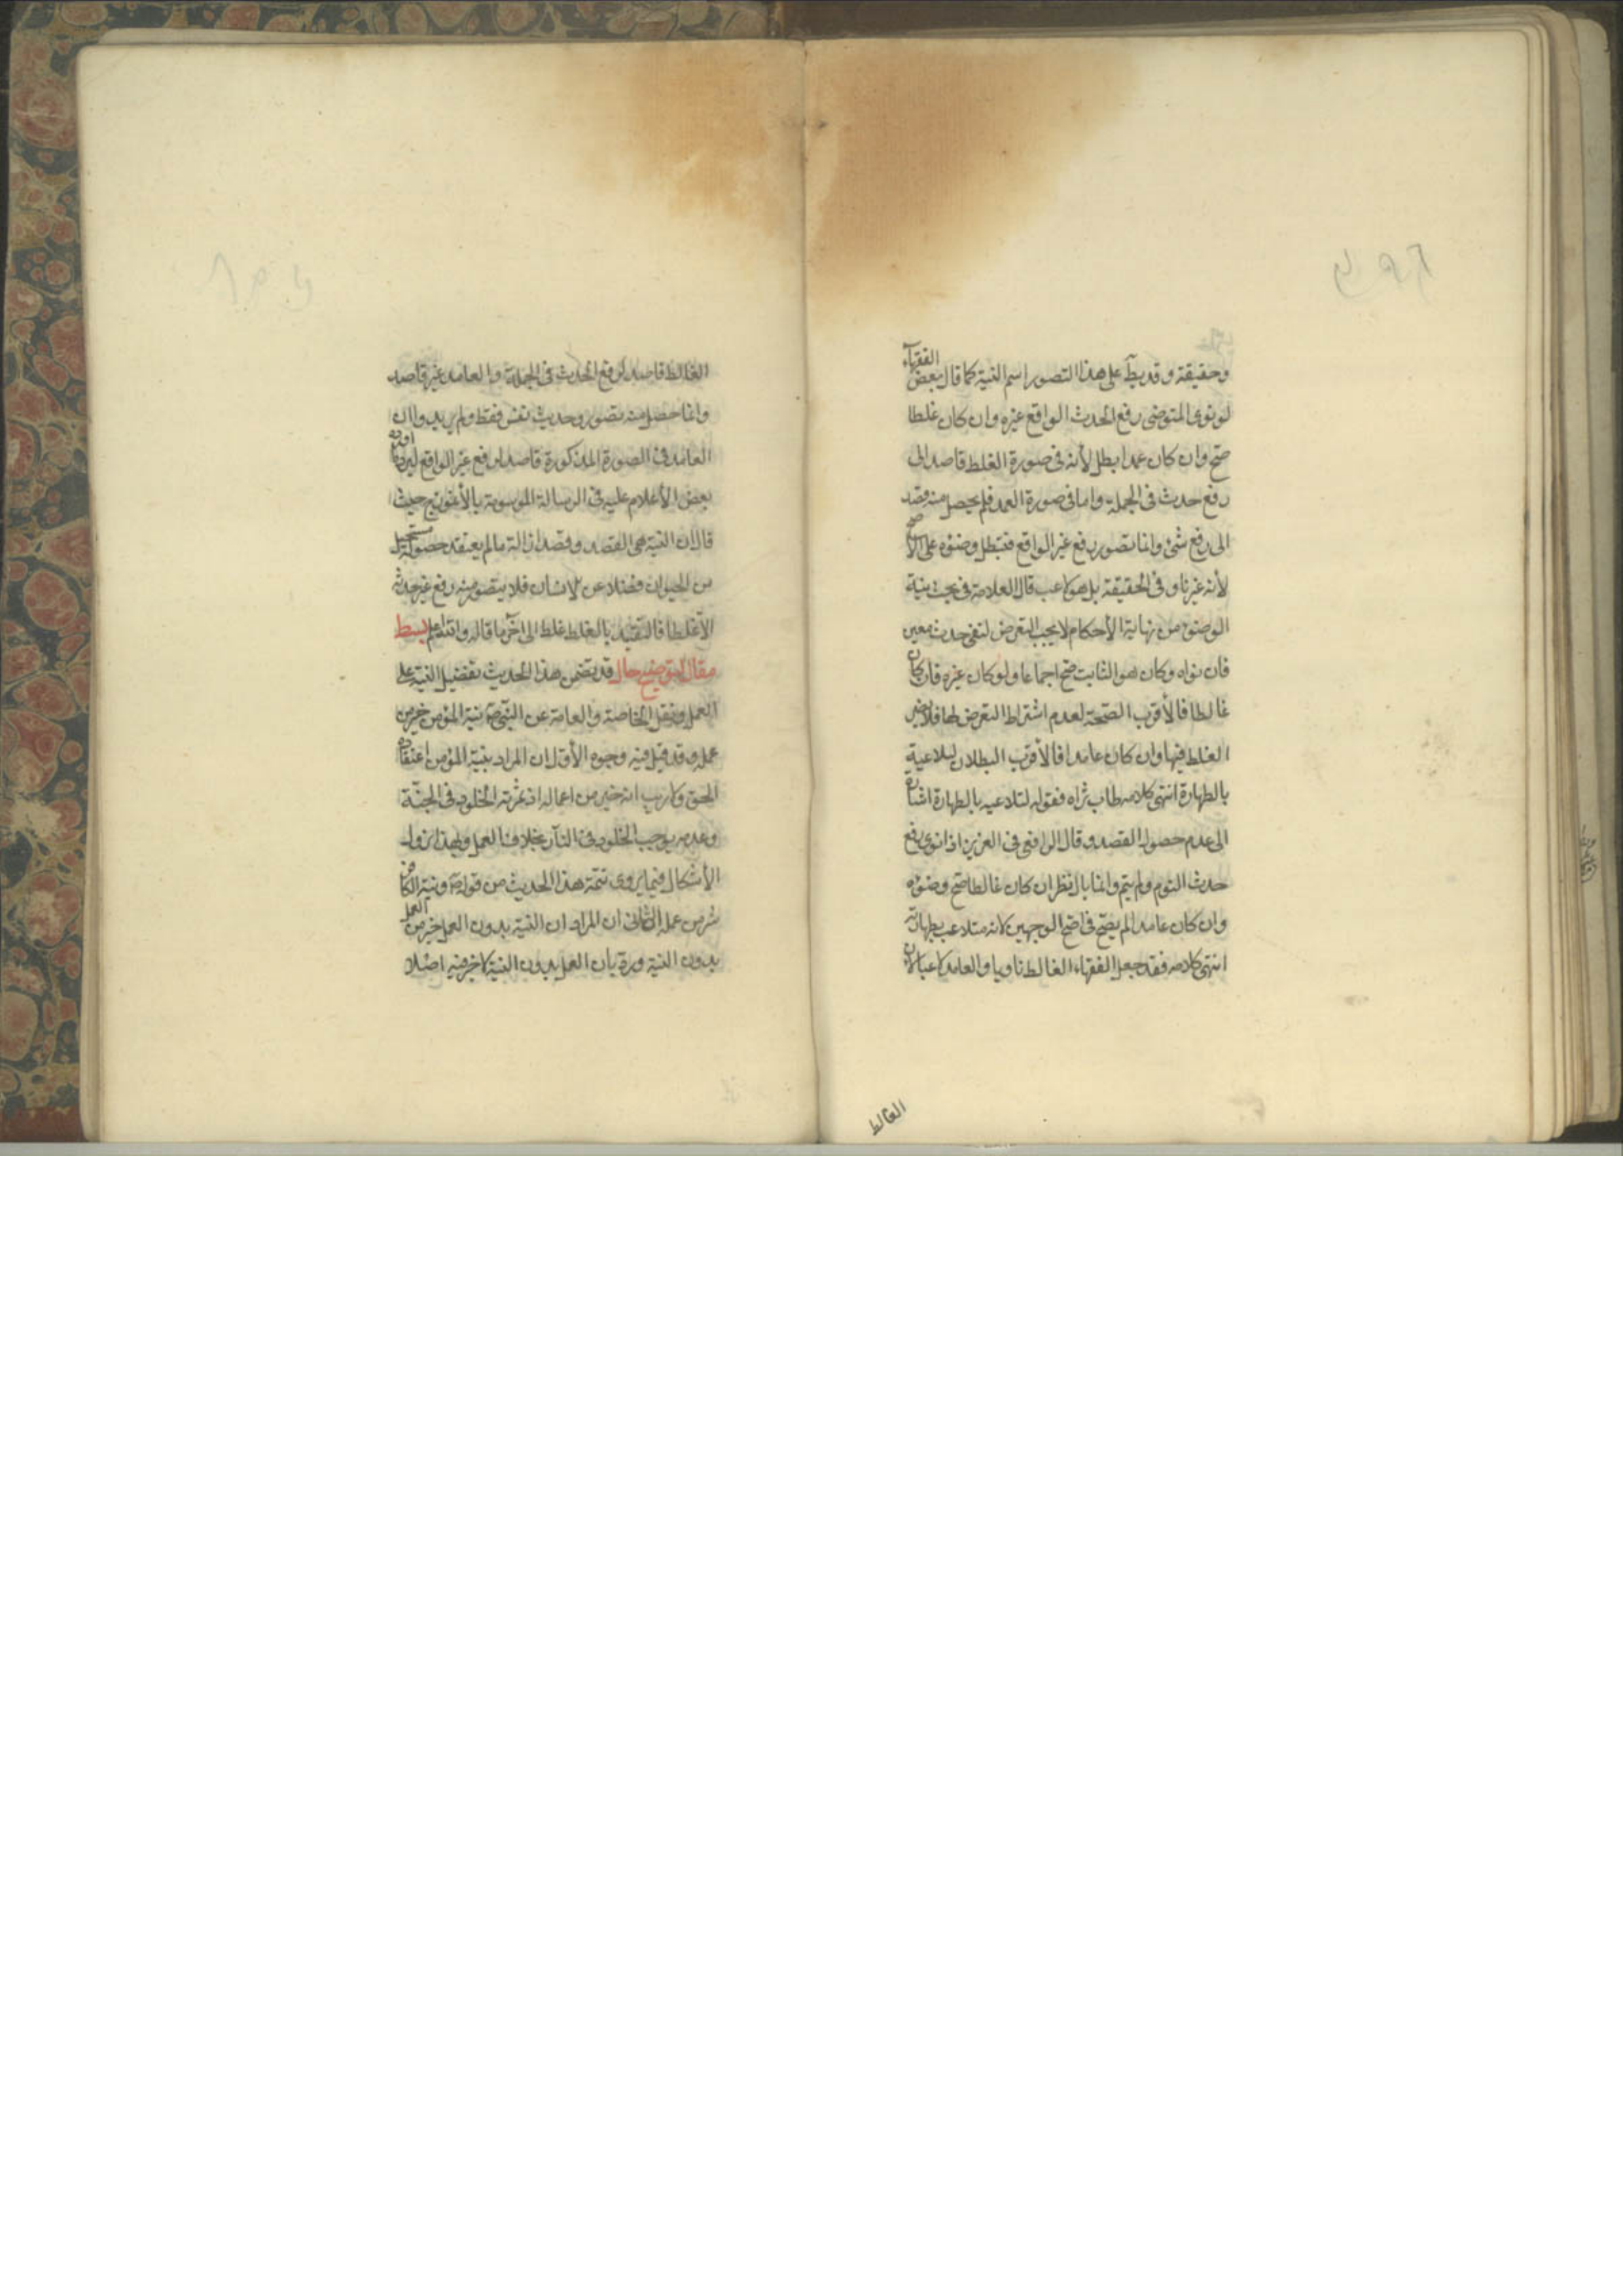 وحقيقة وقد يطلق على هذا التصور اسم النية كما قال بعض الفقهاء
لو نوى المتوضى رفع الحدث الواقع غيره وان كان غلطا
صح وان كان عمدا بطل لأنه فى صورة الغلط قاصد الى
رفع حدث فى الجملة واما فى صورة العمد فلم يحصل منه قصد
الى رفع شئ وانما تصور رفع غير الواقع فتبطل وضوءه على الأصح
لأنه غير ناو فى الحقيقة بل هو لاعب قال العلامة فى بحث نية
الوضوء من نهاية الأحكام لا يجب التعرض لنفى حدث معين
فان نواه وكان هو الثابت صح اجماعا ولو كان غيره فان كان
غالطا فالأقرب الصحة لعدم اشتراط التعرض لها فلا يضر
الغلط فيها وان كان عامدا فالأقرب البطلان لتلاعبه
بالطهارة انتهى كلامه طاب ثراه فقوله لتلاعبه بالطهارة اشارة
الى عدم حصول القصد وقال الرافعى فى العزيز اذا نوى رفع
حدث النوم ولم ينم وانما بال نظر ان كان غالطا صح وضوءه
وان كان عامدا لم يصح فى اصح الوجهين لانه متلاعب بطهارته
انتهى كلامه فقد جعل الفقهاء الغالط ناويا والعامد لاعبا لان
الغالط
الغالط قاصد لرفع الحدث فى الجملة والعامد غير قاصد
وانما حصل منه تصور وحديث نفس فقط ولم يريدوا ان
العامد فى الصورة المذكورة قاصد لرفع غير الواقع ليرد ما اورده
بعض الأعلام عليه فى الرسالة الموسومة بالأنموذج حيث
قال ان النية هى القصد وقصد ازالة ما لم يعتقد حصوله مستحيل
من الحيوان فضلا عن الانسان فلا يتصور منه رفع غير حدثه
الا غلطا فالتقييد بالغلط غلط الى آخر ما قاله والله اعلم بسط
مقال لتوضيح حال قد تضمن هذا الحديث تفضيل النية على
العمل ونقل الخاصة والعامة عن النبى ص نية المؤمن خير من
عمله وقد قيل فيه وجوه الأول ان المراد بنية المؤمن اعتقاده
الحق ولا ريب انه خير من اعماله اذ ثمرته الخلود فى الجنة
وعدمه يوجب الخلود فى النار بخلاف العمل وبهذا يزول
الأشكال فيما يروى تتمة هذا الحديث من قوله ص ونية الكافر
شر من عمله الثانى ان المراد ان النية بدون العمل خير من العمل
بدون النية ورد بان العمل بدون النية لا خير فيه اصلا